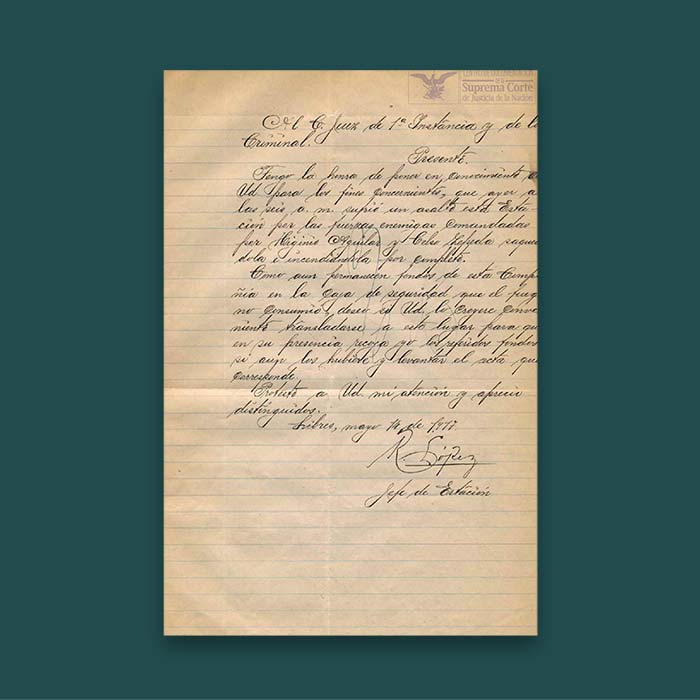 CENTRO DE DOCUMENTACIÓN
DE LA
Suprema Corte
de Justicia de la Nación
Al C. Juez de 1ª Instancia y de lo
Criminal.
Presente.
Tengo la honra de poner en conocimiento de
Ud para los fines concernientes, que ayer a
las seis a. m. sufrió un asalto esta Esta-
cion por las fuerzas enemigas comandadas
por Higinio Aguilar y Celso Cepeda saquean
dola é incendiandola por completo.
Como aun permanecen fondos de esta Compa
ñia en la caja de seguridad que el fueg
no consumió, deseo si Ud. lo creyere conve
niente transladarse a este lugar para qu
en su presencia recoja yo los referidos fondos
si aun los hubiere y levantar el acta que
corresponde.
Protesto a Ud. mi atención y aprecio
distinguidos.
Libres, mayo 14 de 1917.
R. López
Jefe de Estación